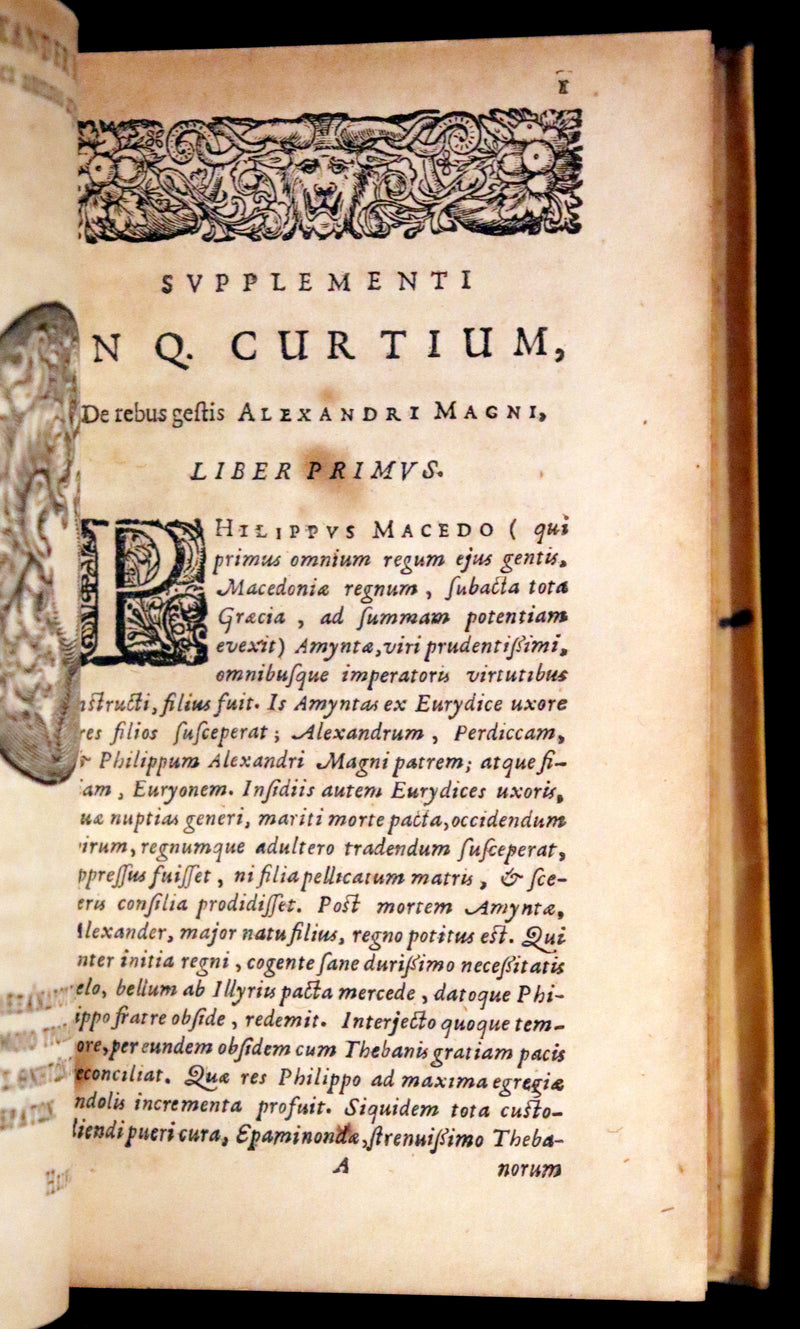 1
SVPPLEMENTI
N Q. CURTIUM,
De rebus geſtis ALEXANDRI MAGNI,
LIBER PRIMVS.
PHILIPPVS MACEDO ( qui
primus omnium regum ejus gentis,
Macedoniæ regnum, ſubacta tota
Græcia, ad ſummam potentiam
evexit) Amyntæ, viri prudentißimi,
omnibuſque imperatoris virtutibus
nſtructi, filius fuit. Is Amyntas ex Eurydice uxore
res filios ſuſceperat; Alexandrum, Perdiccam,
& Philippum Alexandri Magni patrem; atque fi-
am, Euryonem. Inſidiis autem Eurydices uxoris,
uæ nuptias generi, mariti morte pacta, occidendum
irum, regnumque adultero tradendum ſuſceperat,
ppreſſus fuiſſet, ni filia pellicatum matris, & ſce-
eris conſilia prodidiſſet. Poſt mortem Amyntæ,
lexander, major natu filius, regno potitus eſt. Qui
nter initia regni, cogente ſane durißimo neceßitatis
elo, bellum ab Illyriis pacta mercede, datoque Phi-
ippo fratre obſide, redemit. Interjecto quoque tem-
ore, per eundem obſidem cum Thebanis gratiam pacis
econciliat. Quæ res Philippo ad maxima egregiæ
ndolis incrementa profuit. Siquidem tota cuſto-
liendi pueri cura, Epaminondæ, ſtrenuißimo Theba-
A norum